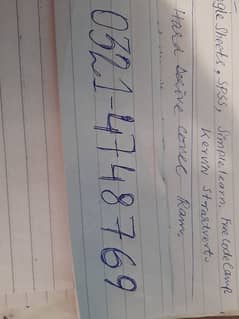 ogle Sheets, SPSS, Simplelearn, FreeCodeCamp
Kevin Stratvert
Hard Drive cover Ram,
0321-4748769